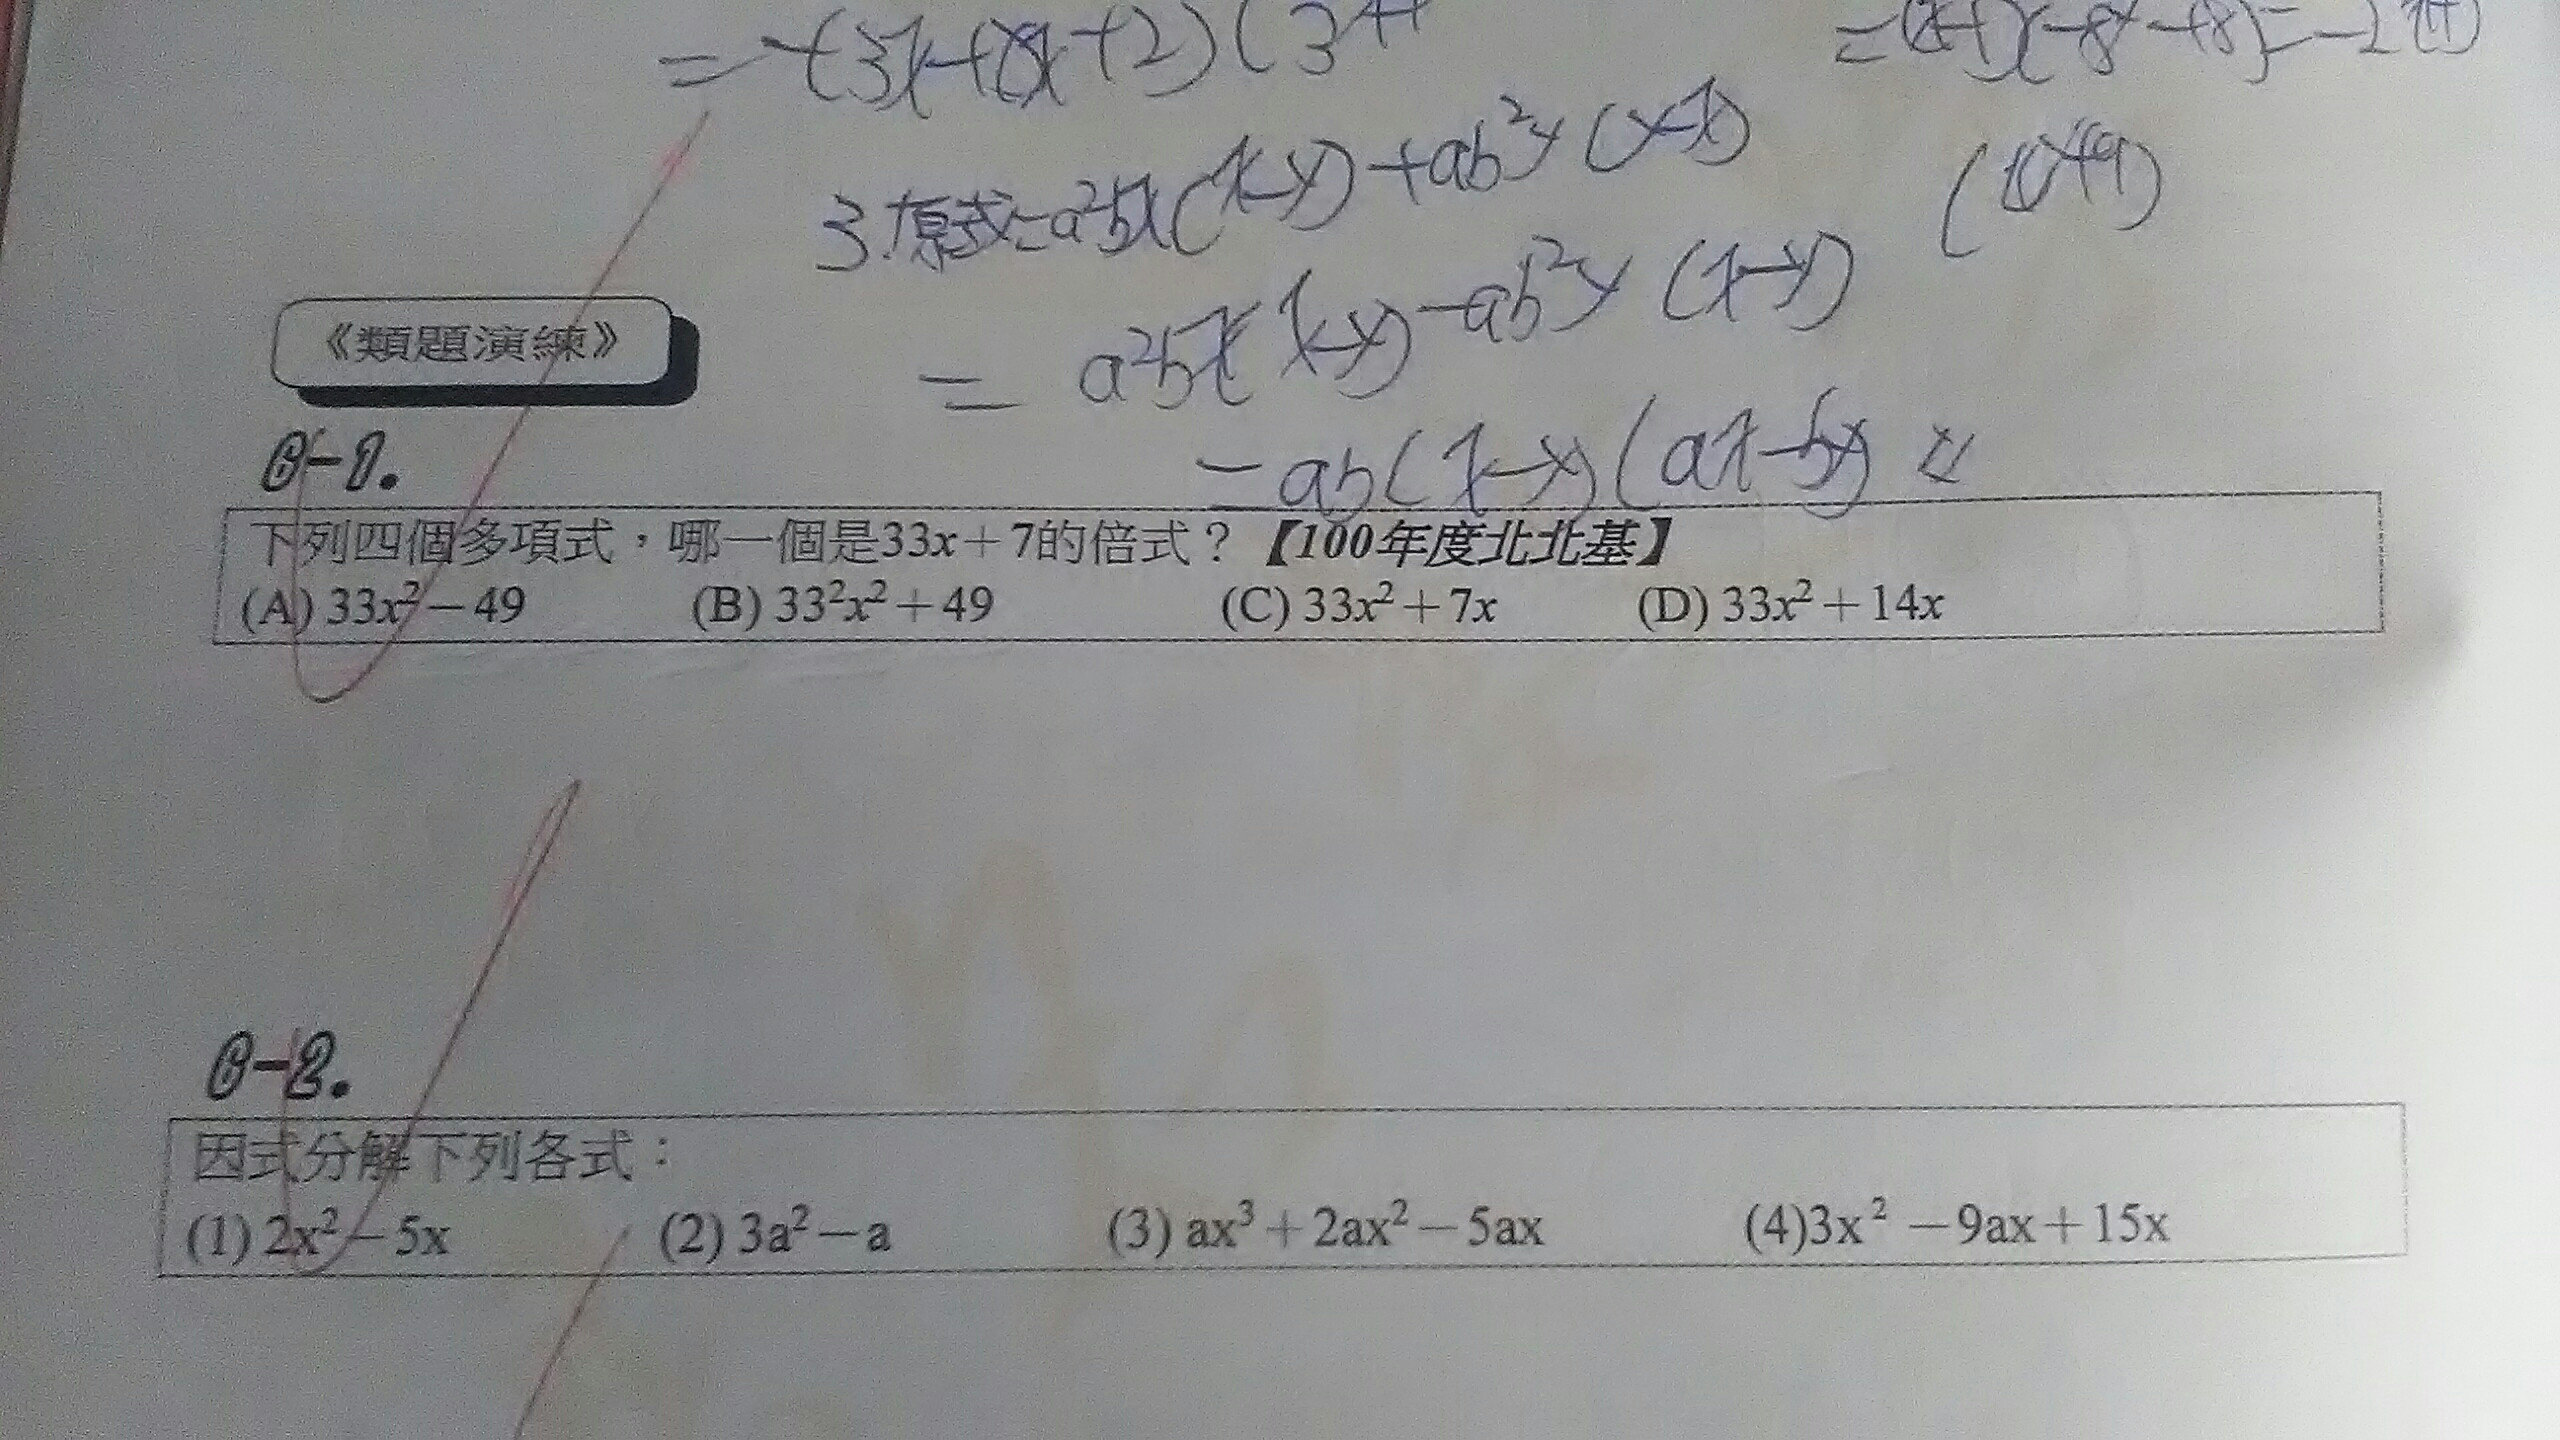 3.原式=a²bx(x-y)+ab²y(y-x)
= a²bx(x-y)-ab²y(x-y)
=ab(x-y)(ax-by)
《類題演練》
6-1.
下列四個多項式，哪一個是33x+7的倍式？【100年度北北基】
(A) 33x²－49 (B) 33²x²+49 (C) 33x²+7x (D) 33x²+14x
6-2.
因式分解下列各式：
(1) 2x²－5x (2) 3a²－a (3) ax³+2ax²－5ax (4)3x²－9ax+15x